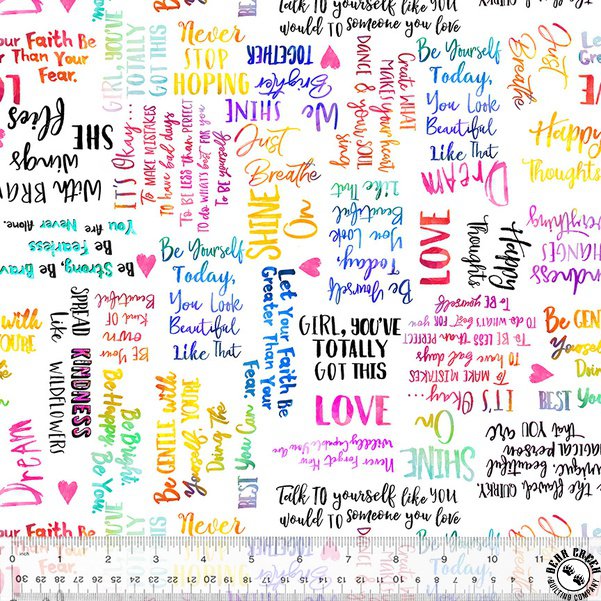 Talk TO yourself like YOU
would TO someone you love
Your Faith Be
Greater Than Your
Fear.
GIRL, YOU'VE
TOTALLY
GOT THIS
Never
STOP
HOPING
We
SHINE
Brighter
TOGETHER
Create WHAT
MAKES your heart
DANCE & your SOUL
sing
Be Yourself
Today,
You Look
Beautiful
Like That
Just
Breathe
LOVE
With BRAVE
wings
SHE
flies
IT'S Okay...
TO MAKE MISTAKES
To have bad days
TO BE LESS than PERFECT
TO do WHAT'S best FOR you
TO BE yourself
Just
Breathe
DREAM
Happy
Thoughts
Be Strong, Be Brave
Be Fearless
You Are Never Alone.
Be Yourself
Today,
You Look
Beautiful
Like That
SHINE
On
Be Yourself
Today,
You Look
Beautiful
Like That
LOVE
Happy
Thoughts
Kindness
CHANGES
Everything
SPREAD KINDNESS
Like WILDFLOWERS
BE Your
own
Kind OF
Beautiful
Let Your Faith Be
Greater Than Your
Fear.
GIRL, YOU'VE
TOTALLY
GOT THIS
IT'S Okay...
TO MAKE MISTAKES
To have bad days
TO BE LESS than PERFECT
TO do WHAT'S best FOR you
TO BE yourself
Be GENTLE
Yourself
Doing
BEST YOU
DREAM
Be Bright.
Be Happy. Be You.
Be GENTLE with
Yourself, YOU'RE
Doing The
BEST You Can
LOVE
Never Forget How
Wildly Capable You Are
SHINE
On
that YOU are
Talk TO yourself like YOU
would TO someone you love
Your Faith Be
Than Your
Fear.
Never
STOP
1 2 3 4 5 6 7 8 9 10 11
BEAR CREEK
QUILTING COMPANY